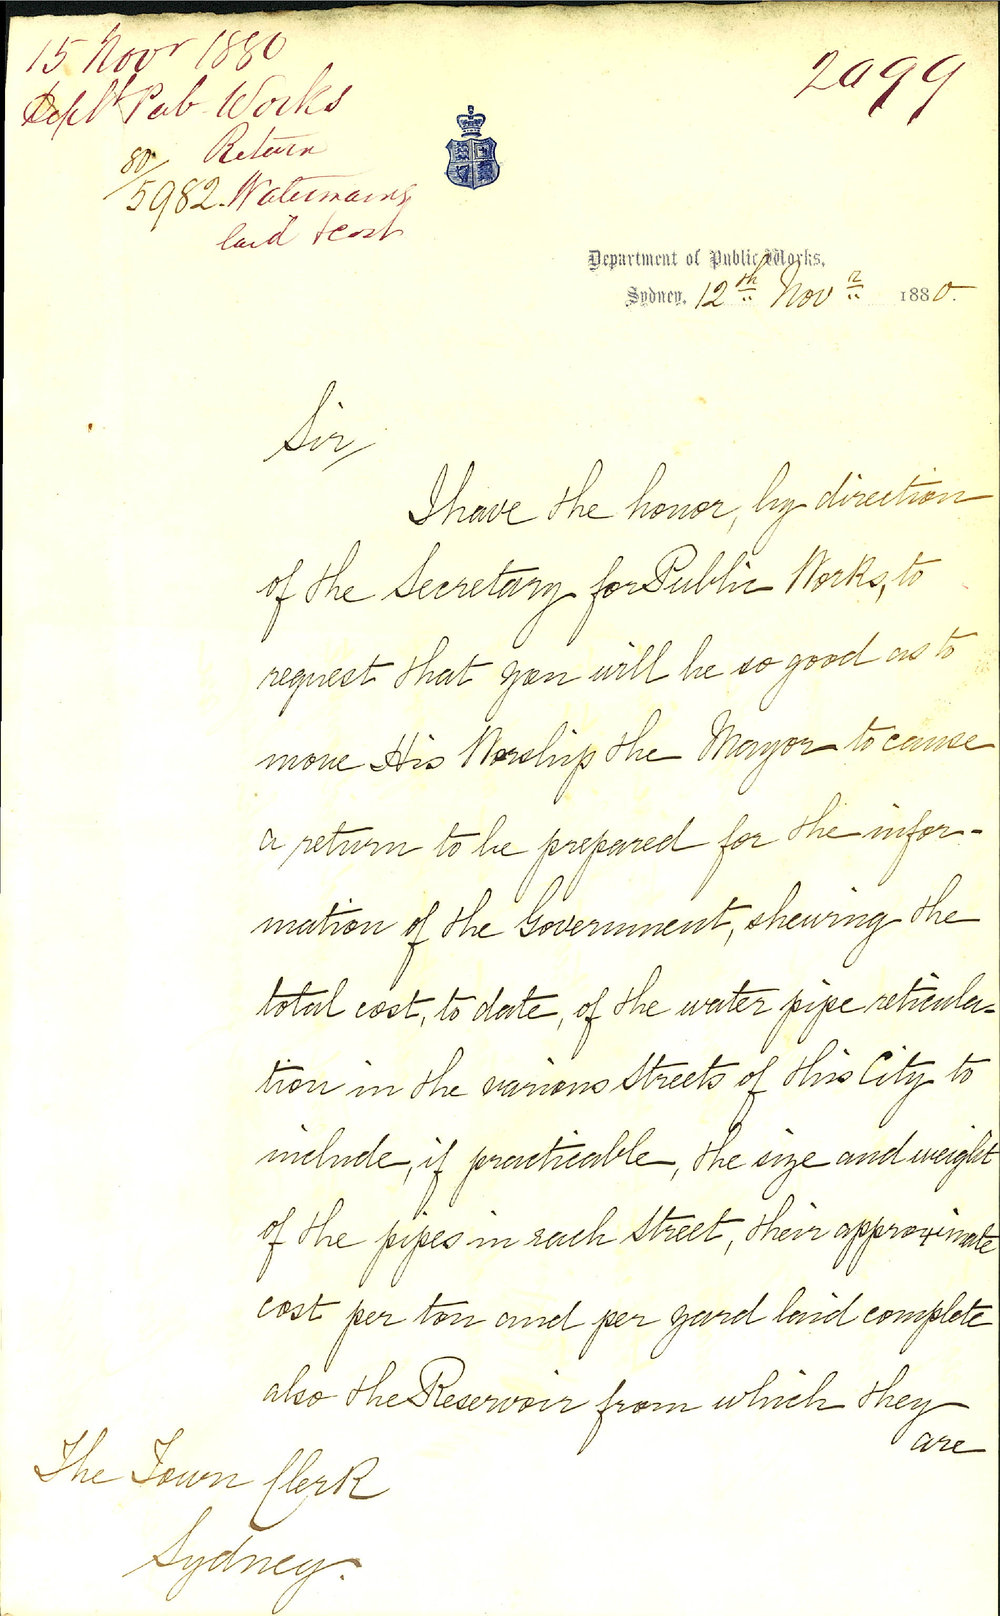 15 Novr 1880
Dept Pub Works
Return
80/5982. Watermains
laid & cost
2099
Department of Public Works,
Sydney, 12th Novr 1880.
Sir,
I have the honor, by direction
of the Secretary for Public Works, to
request that you will be so good as to
move His Worship the Mayor to cause
a return to be prepared for the infor-
mation of the Government, shewing the
total cost, to date, of the water pipe reticula-
tion in the various Streets of this City to
include, if practicable, the size and weight
of the pipes in each Street, their approximate
cost per ton and per yard laid complete
also the Reservoir from which they
are
The Town Clerk
Sydney.